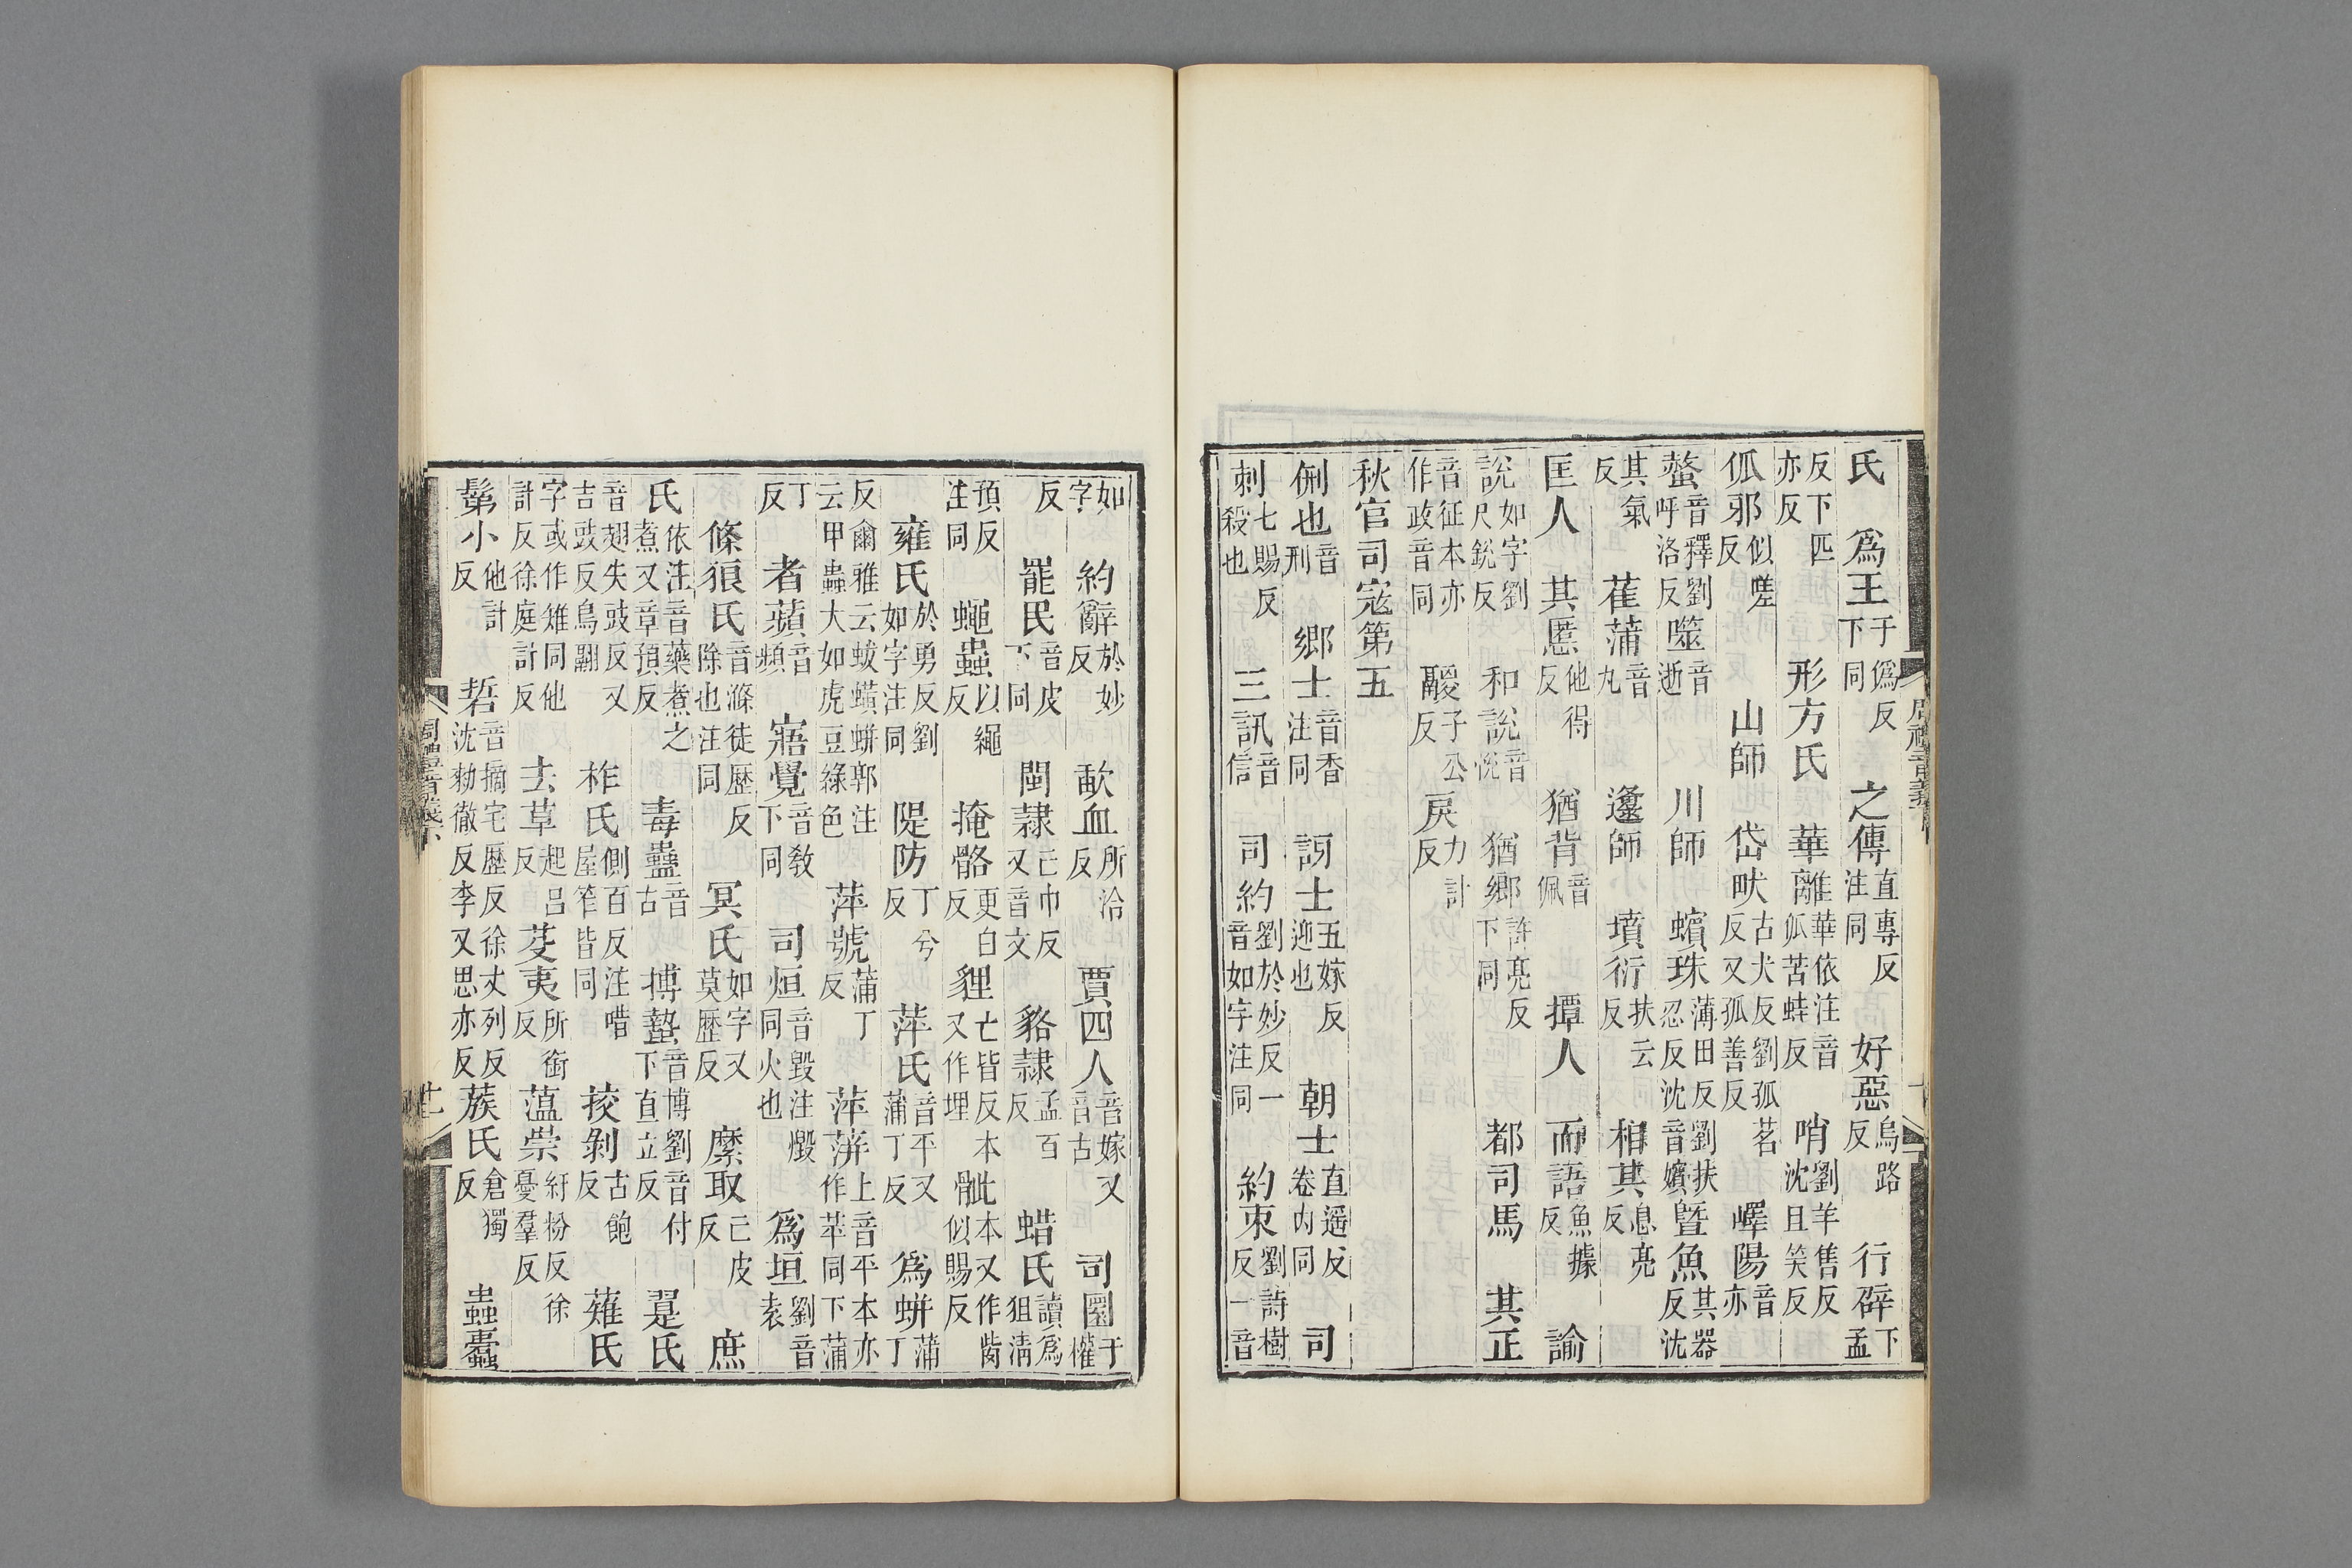 氏　爲王于僞反下同　之傳直專反注同　好惡烏路反　行辟下孟
反下匹亦反　形方氏　華離華依注音㧓苦蛙反　哨劉羊售反沈且笑反
㧓邪似嗟反　山師　岱畎古犬反劉孤茗反又孤善反　嶧陽音亦
螫音釋劉呼洛反噬音逝　川師　蠙珠薄田反劉扶忍反沈音嬪曁魚其器反沈
其氣反　萑蒲音丸　邍師　墳衍扶云反　相其息亮反
匡人　其慝他得反　猶背音佩　撢人　而語魚據反　諭
說如字劉尺銳反　和說音悅　猶鄉許亮反下同　都司馬　其正
音征本亦作政音同　鬷子公反　戾力計反
秋官司寇第五
侀也音刑　鄉士音香注同　訝士五嫁反迎也　朝士直遥反卷内同　司
刺七賜反殺也　三訊音信　司約劉於妙反一音如字注同　約束劉詩樹反一音
周禮音義
如字　約辭於妙反　歃血所洽反　賈四人音嫁又音古　司圜于權
反　罷民音皮下同　閩隸亡巾反又音文　貉隸孟百反　蜡氏讀爲狙淸
預反注同　蠅蟲以繩反　掩骼更白反　貍亡皆反本又作埋　骴此本又作㱴似賜反
雍氏於勇反劉如字注同　隄防丁兮反　萍氏音平又蒲丁反　爲蛢蒲丁
反爾雅云蛂蟥蛢郭注云甲蟲大如虎豆綠色　萍號蒲丁反　萍蓱上音平本亦作苹同下蒲
丁反　者蘋音頻　寤覺音敎下同　司烜音毀注燬同火也　爲垣劉音袁
條狼氏音滌徒歷反除也注同　冥氏如字又莫歷反　縻取亡皮反　庶
氏依注音藥煮之煮又章預反　毒蠱音古　搏蟄音博劉音付下直立反　翨氏
音翅失豉反又吉豉反鳥翮　柞氏側百反注唶屋笮皆同　䓘剝古飽反　薙氏
字或作雉同他計反徐庭計反　去草起呂反　芟夷所銜反　薀崇紆粉反徐憂羣反
髴小他計反　硩音摘宅歷反徐丈列反沈勑徹反李又思亦反　蔟氏倉獨反　蟲蠹
周禮音義
十一